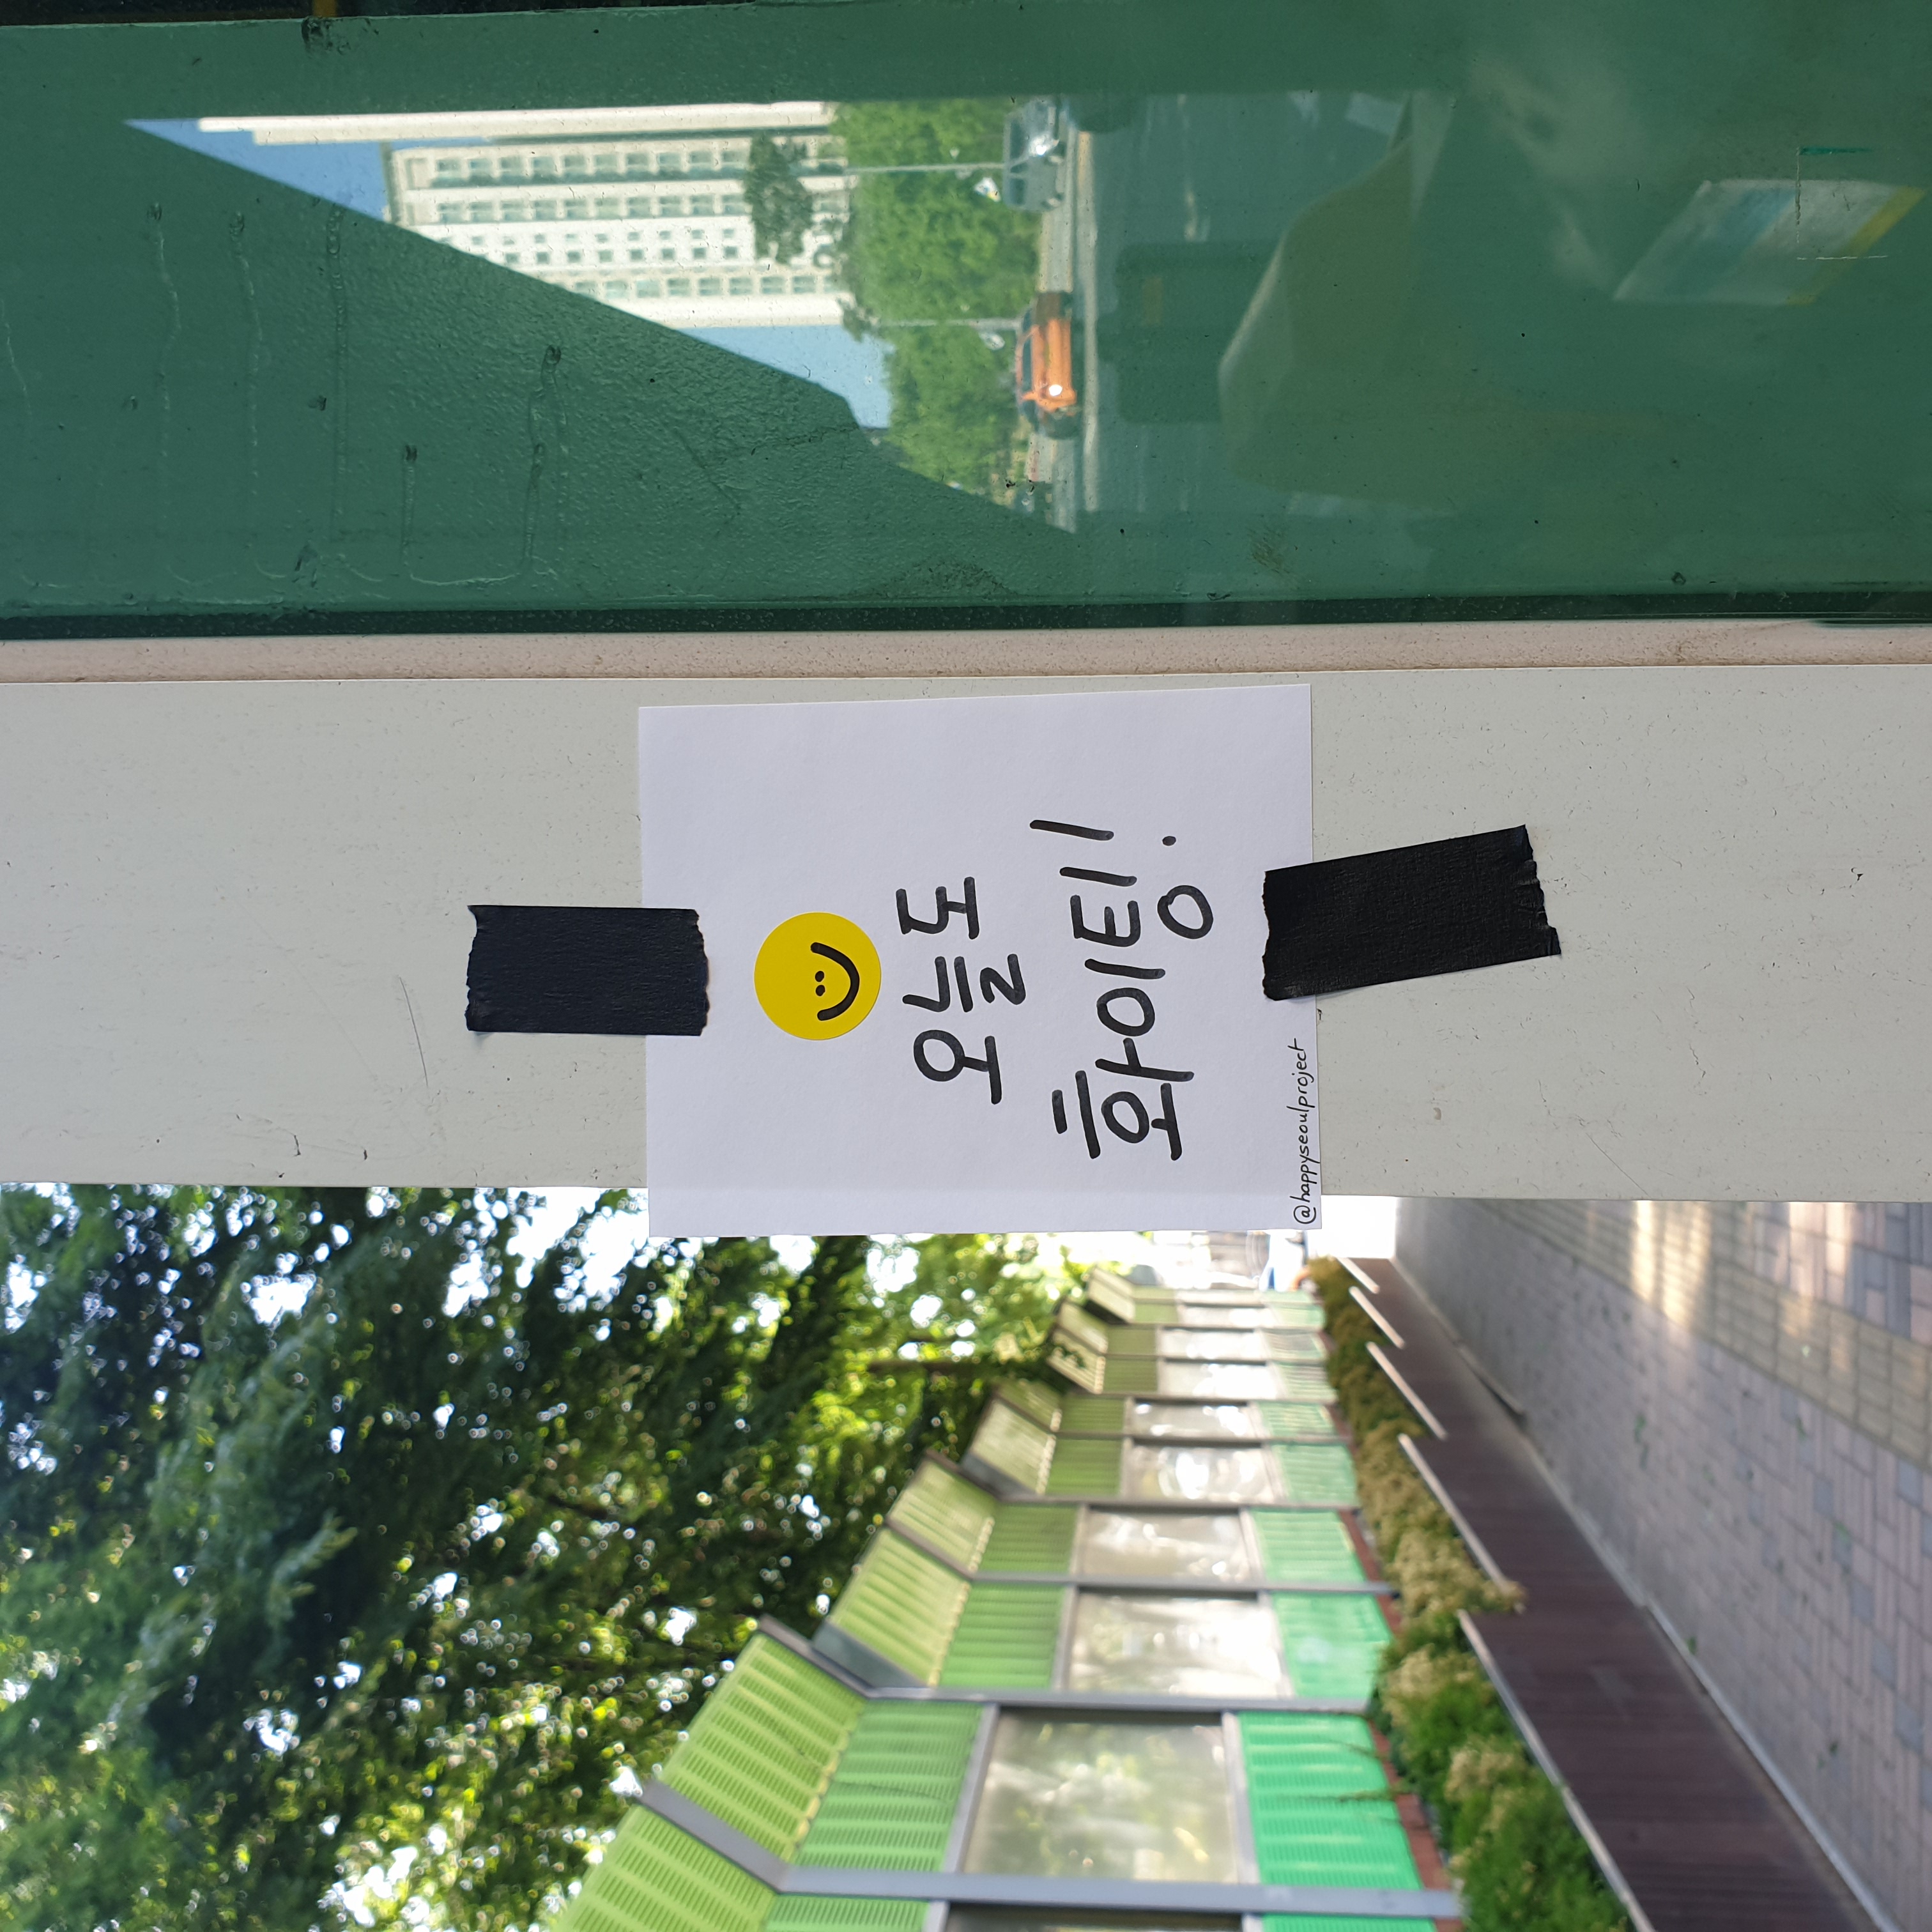 오늘도
화이팅!
@happyseoulproject